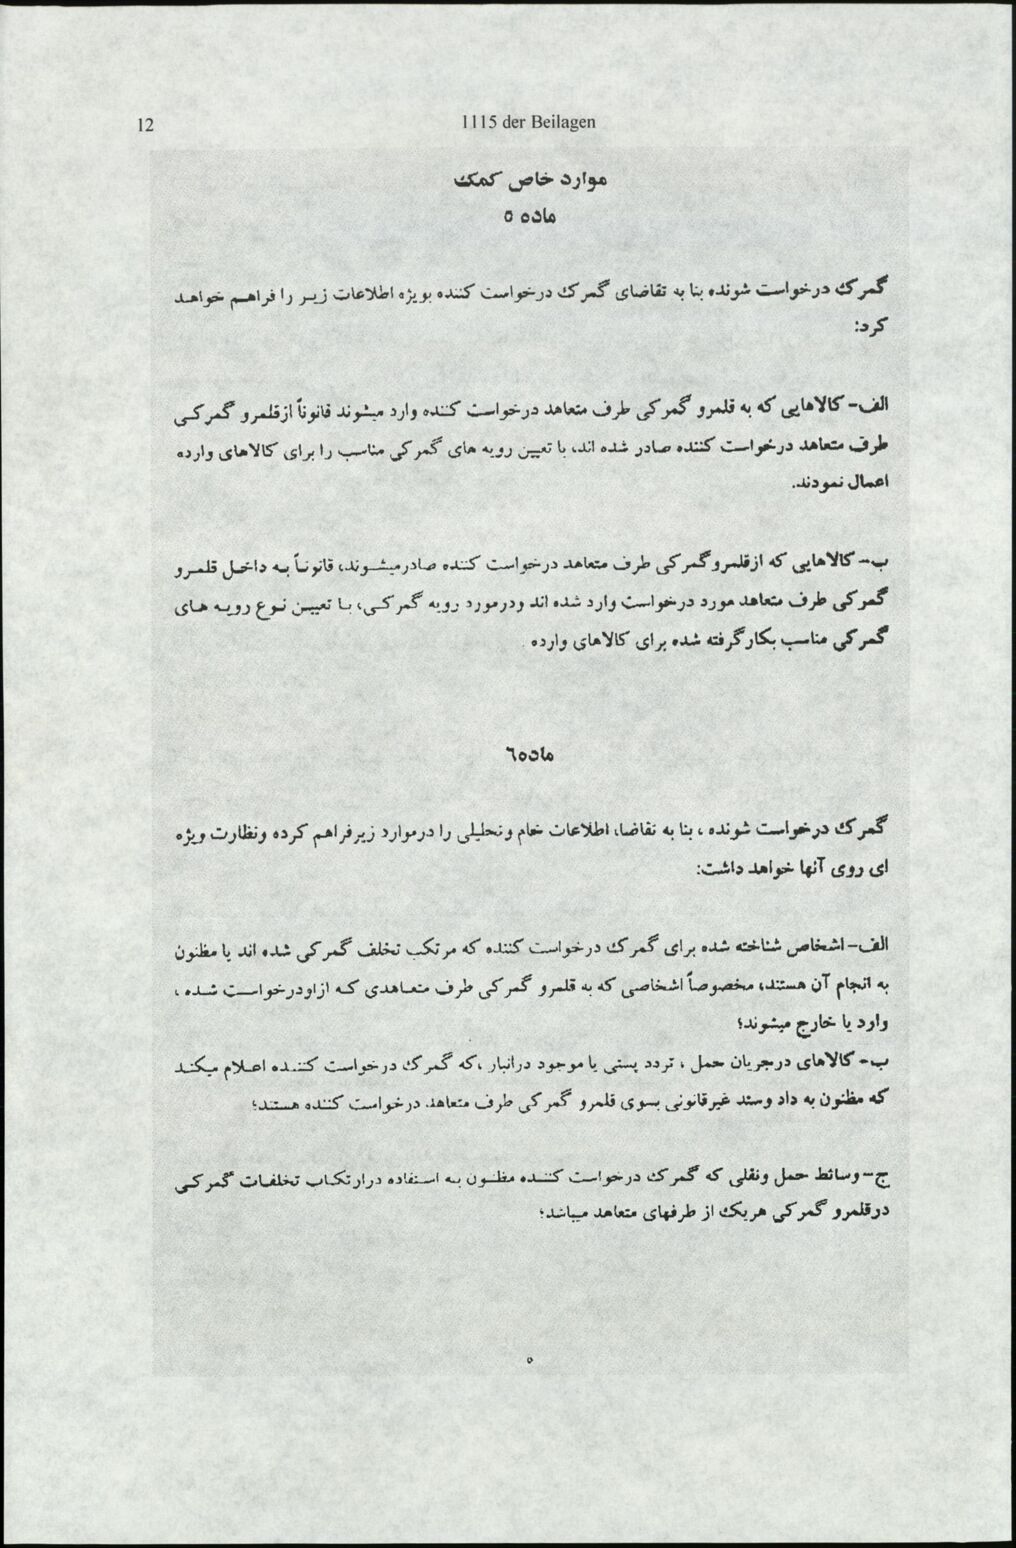 12
1115 der Beilagen
موارد خاص کمک
ماده ٥
گمرک درخواست شونده بنا به تقاضای گمرک درخواست کننده بویژه اطلاعات زیر را فراهم خواهد
کرد:
الف- کالاهایی که به قلمرو گمرکی طرف متعاهد درخواست کننده وارد میشوند قانوناً ازقلمرو گمرکی
طرف متعاهد درخواست کننده صادر شده اند، با تعیین رویه های گمرکی مناسب را برای کالاهای وارده
اعمال نمودند.
ب- کالاهایی که ازقلمروگمرکی طرف متعاهد درخواست کننده صادرمیشوند، قانوناً به داخل قلمرو
گمرکی طرف متعاهد مورد درخواست وارد شده اند ودرمورد رویه گمرکی، با تعیین نوع رویه های
گمرکی مناسب بکارگرفته شده برای کالاهای وارده .
ماده٦
گمرک درخواست شونده ، بنا به تقاضا، اطلاعات خام وتحلیلی را درموارد زیرفراهم کرده ونظارت ویژه
ای روی آنها خواهد داشت:
الف- اشخاص شناخته شده برای گمرک درخواست کننده که مرتکب تخلف گمرکی شده اند یا مظنون
به انجام آن هستند، مخصوصاً اشخاصی که به قلمرو گمرکی طرف متعاهدی که ازاودرخواست شده ،
وارد یا خارج میشوند؛
ب- کالاهای درجریان حمل ، تردد پستی یا موجود درانبار ،که گمرک درخواست کننده اعلام میکند
که مظنون به داد وستد غیرقانونی بسوی قلمرو گمرکی طرف متعاهد درخواست کننده هستند؛
ج- وسائط حمل ونقلی که گمرک درخواست کننده مظنون به استفاده درارتکاب تخلفات گمرکی
درقلمرو گمرکی هریک از طرفهای متعاهد میباشد؛
٥